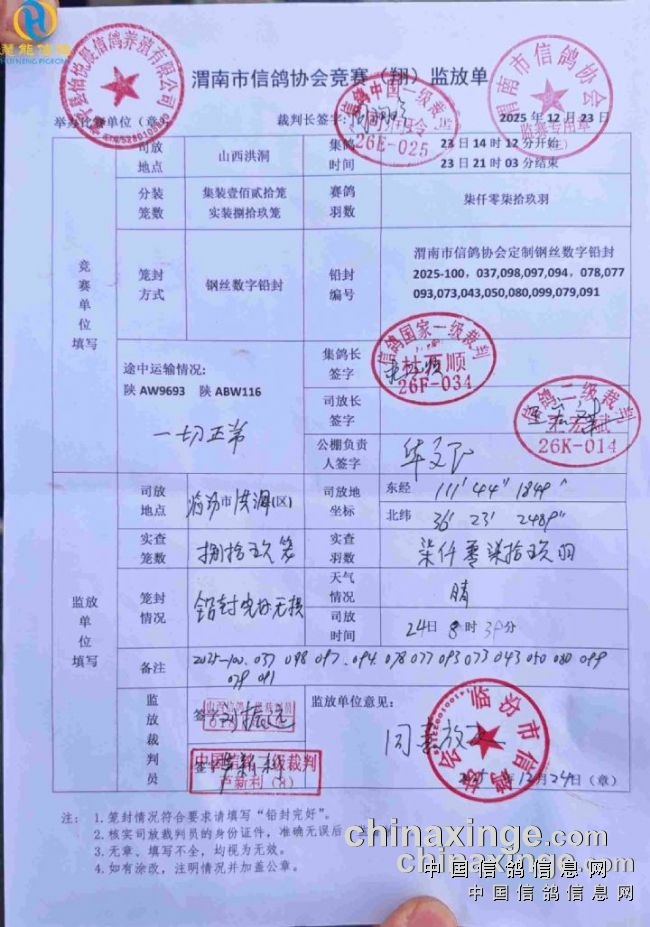 慧能信鸽
HUI NENG PIGEON
渭南市信鸽协会竞赛（翔）监放单
举办比赛单位（章）
裁判长签字：
2025 年 12 月 23 日
信鸽中国一级裁判
26E-025
渭南市信鸽协会
监赛专用章
竞赛单位填写
司放地点 山西洪洞
集鸽时间 23 日 14 时 12 分开始
23 日 21 时 03 分结束
分装笼数 集装壹佰贰拾笼
实装捌拾玖笼
赛鸽羽数 柒仟零柒拾玖羽
笼封方式 钢丝数字铅封
铅封编号 渭南市信鸽协会定制钢丝数字铅封
2025-100，037,098,097,094，078,077
093,073,043,050,080,099,079,091
途中运输情况：
陕 AW9693 陕 ABW116
一切正常
集鸽长签字
信鸽国家一级裁判
26F-034
司放长签字
信鸽二级裁判
26K-014
公棚负责人签字
监放单位填写
司放地点 临汾市洪洞(区)
司放地坐标 东经 111° 44" 1849"
北纬 36° 23' 2489"
实查笼数 捌拾玖笼
实查羽数 柒仟零柒拾玖羽
笼封情况 铅封完好无损
天气情况 晴
司放时间 24日 8 时 39分
备注 2025-100.037 098 097.094.078 077 093 073 043 050 080 099
079 091
监放裁判员
签字 刘振远
签字
中国信鸽一级裁判
芦新利（8）
监放单位意见：
同意放飞
临汾市信鸽协会
2025年12月24日（章）
注： 1.笼封情况符合要求请填写“铅封完好”。
2.核实司放裁判员的身份证件，准确无误后
3.无章、填写不全，均视为无效。
4.如有涂改，注明情况并加盖公章。
chinaxinge.com
chinaxinge.com
中国信鸽信息网
中国信鸽信息网